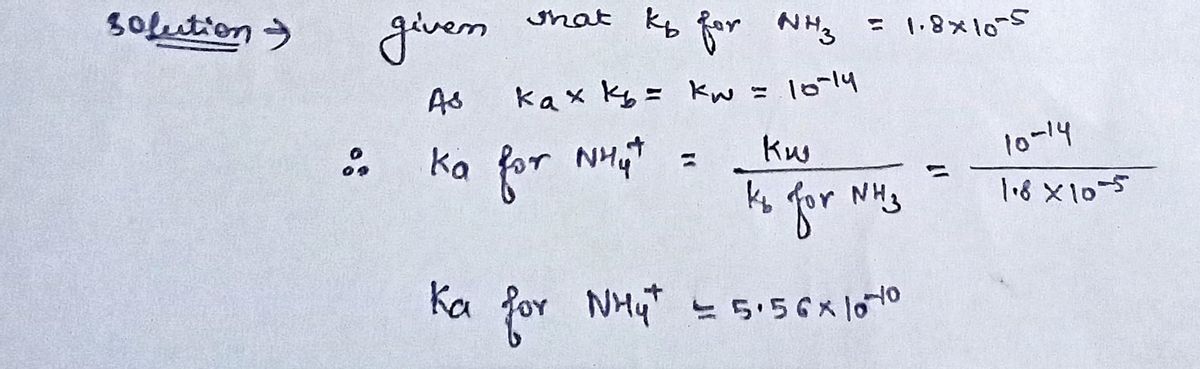 Solution → given that Kb for NH₃ = 1.8×10⁻⁵
As Ka × Kb = Kw = 10⁻¹⁴
∴ Ka for NH₄⁺ = Kw / Kb for NH₃ = 10⁻¹⁴ / 1.8 × 10⁻⁵
Ka for NH₄⁺ = 5.56 × 10⁻¹⁰